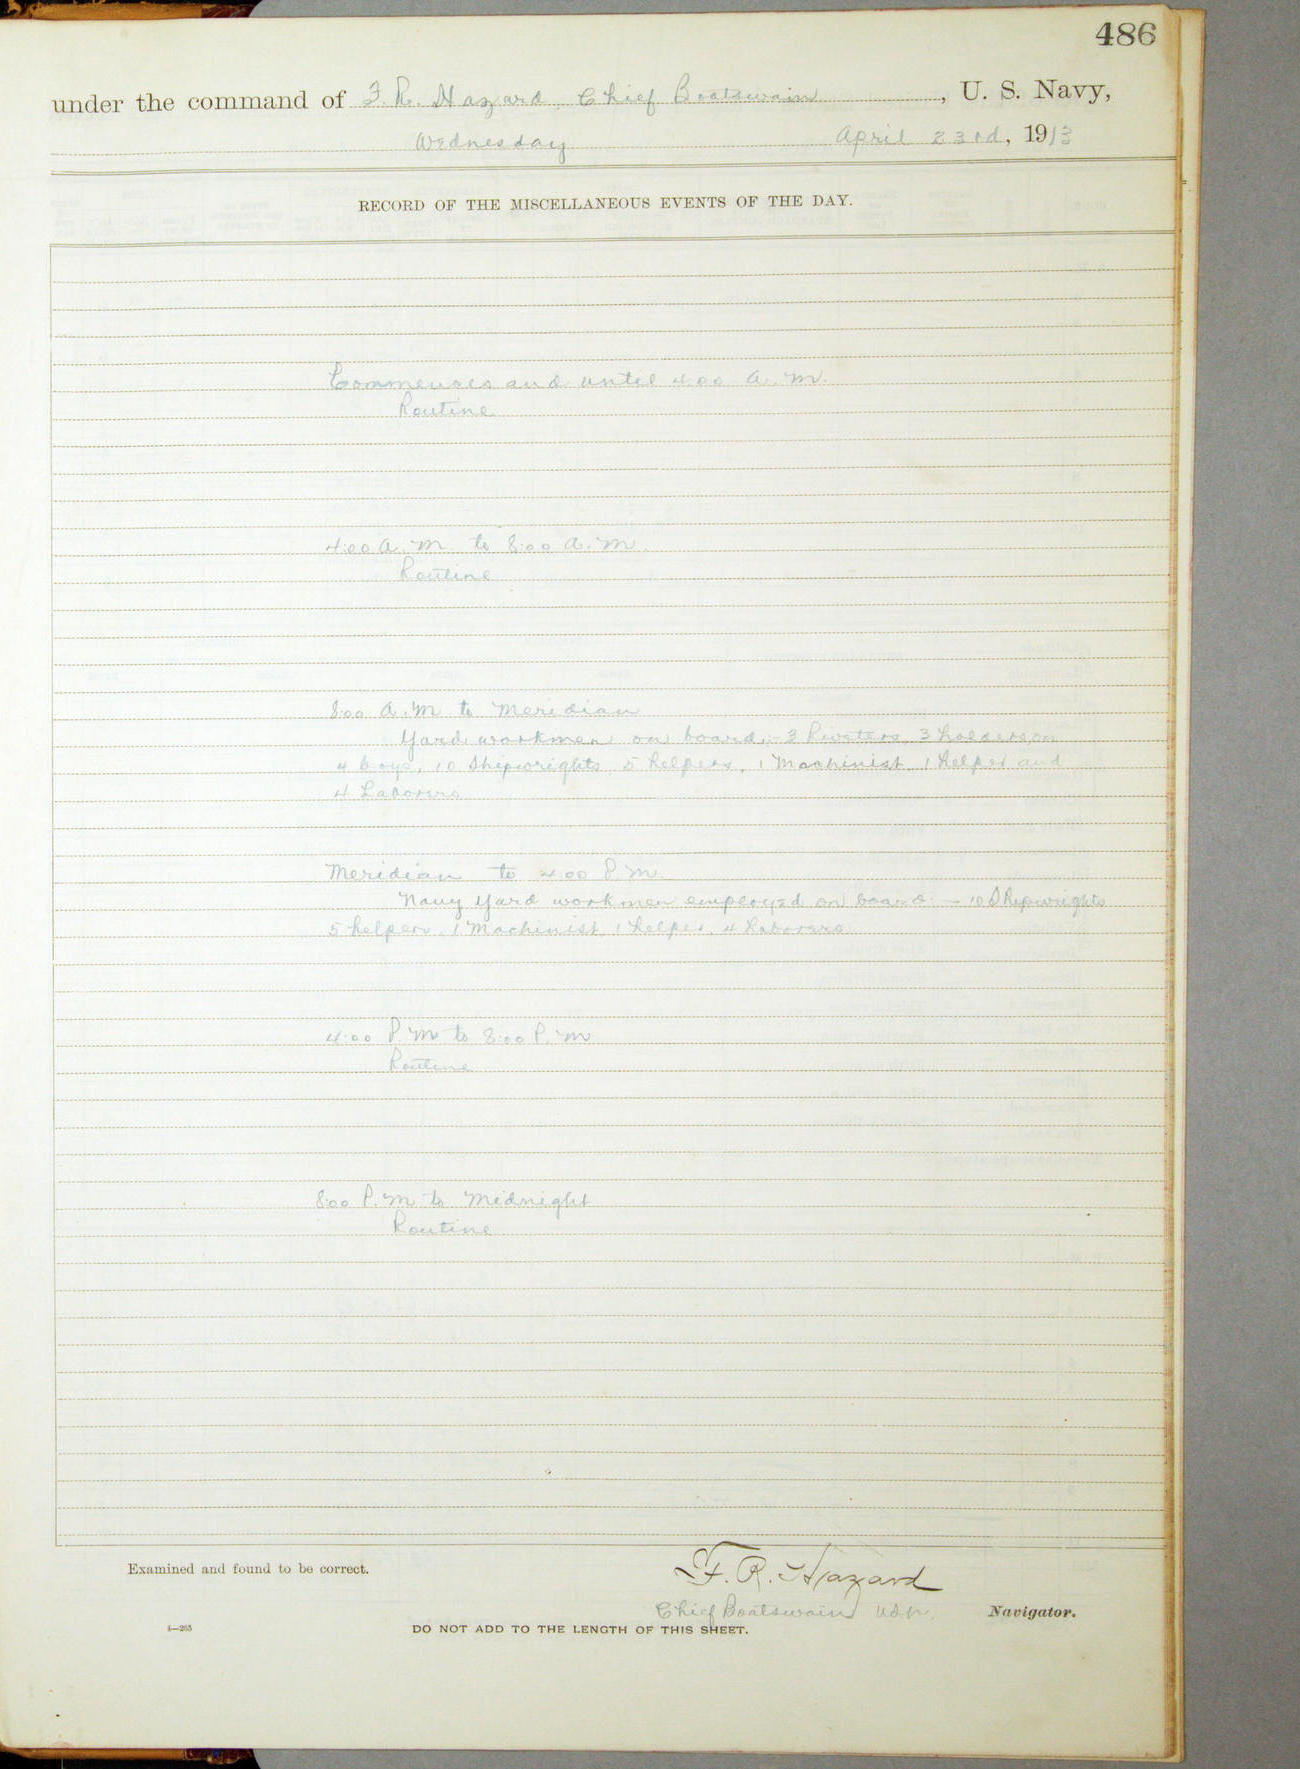 486
under the command of F. R. Hazard, Chief Boatswain, U. S. Navy,
Wednesday April 23rd, 1913
RECORD OF THE MISCELLANEOUS EVENTS OF THE DAY.
Commences and until 4:00 A.M.
Routine
4:00 A.M. to 8:00 A.M.
Routine
8:00 A.M to Meridian
Yard workmen on board:- 3 Riveters, 3 holders on
4 boys, 10 Shipwrights 5 helpers, 1 Machinist 1 helper and
4 Laborers
Meridian to 4:00 P.M.
Navy Yard workmen employed on board:- 10 Shipwrights
5 helpers, 1 Machinist 1 helper, 4 Laborers
4:00 P.M to 8:00 P.M
Routine
8:00 P.M to Midnight
Routine
Examined and found to be correct.
F. R. Hazard
Chief Boatswain U.S.N. Navigator.
DO NOT ADD TO THE LENGTH OF THIS SHEET.